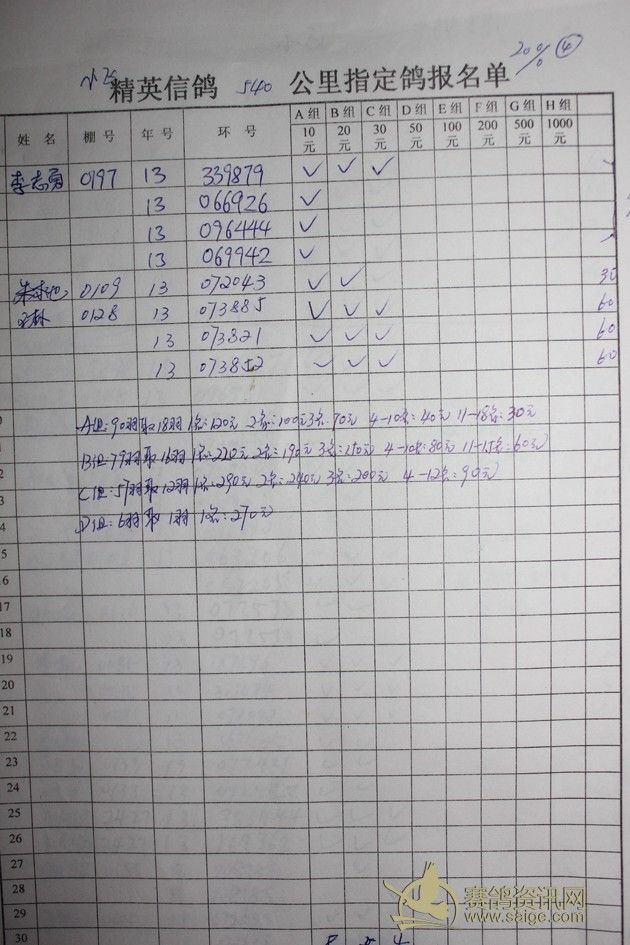 精英信鸽 540 公里指定鸽报名单 20% ④
姓 名 棚 号 年 号 环 号 A 组 10 元 B 组 20 元 C 组 30 元 D 组 50 元 E 组 100 元 F 组 200 元 G 组 500 元 H 组 1000 元
李志勇 0197 13 339879 ✓ ✓ ✓
13 066926 ✓
13 096444 ✓
13 069942 ✓
0109 13 072043 ✓ ✓ 30
0128 13 073885 ✓ ✓ ✓ 60
13 073821 ✓ ✓ ✓ 60
13 073852 ✓ ✓ ✓ 60
A组:90羽取18羽 1名:120元 2名:100元 3名:70元 4-10名:40元 11-18名:30元
B组:79羽取16羽 1名:220元 2名:190元 3名:150元 4-10名:80元 11-15名:60元
C组:57羽取12羽 1名:290元 2名:240元 3名:200元 4-12名:90元
D组:6羽取1羽 1名:270元
5
16
17
18
19
20
21
22
23
24
25
26
27
28
29
30
赛鸽资讯网
www.saige.com